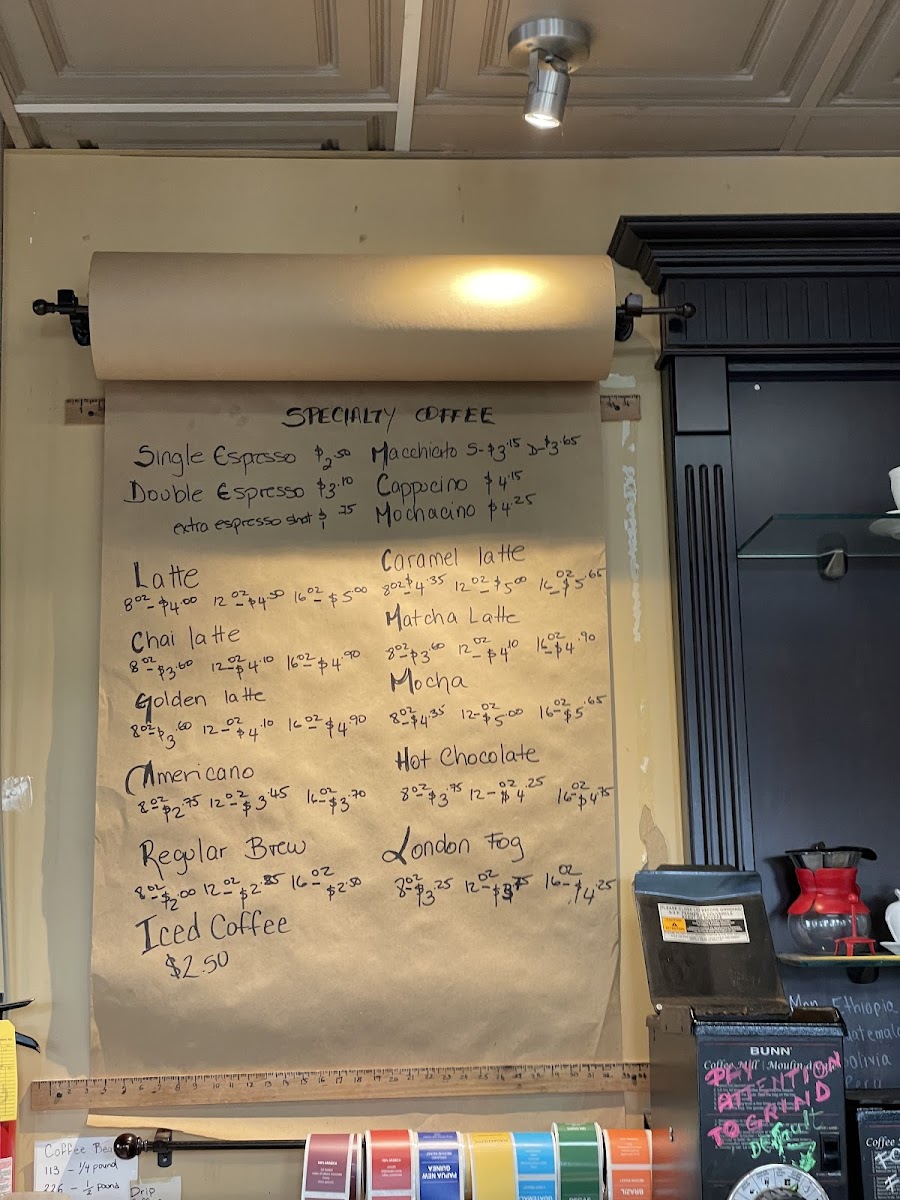 SPECIALTY COFFEE
Single Espresso $2.50
Double Espresso $3.10
extra espresso shot $1.25
Macchiato S-$3.15 D-$3.65
Cappucino $4.15
Mochacino $4.25
Latte
8oz-$4.00 12oz-$4.50 16oz-$5.00
Chai latte
8oz-$3.60 12oz-$4.10 16oz-$4.90
Golden latte
8oz-$3.60 12-oz$4.10 16oz-$4.90
Americano
8oz-$2.75 12oz-$3.45 16oz-$3.70
Regular Brew
8oz-$2.00 12oz-$2.25 16-oz $2.50
Iced Coffee
$2.50
Caramel latte
8oz-$4.35 12oz-$5.00 16oz-$5.65
Matcha Latte
8oz-$3.60 12oz-$4.10 16oz-$4.90
Mocha
8oz-$4.35 12-oz$5.00 16oz-$5.65
Hot Chocolate
8oz-$3.75 12-oz$4.25 16oz-$4.75
London Fog
8oz-$3.25 12oz-$3.75 16oz-$4.25
Ethiopia
BUNN
Coffee Mill | Moulin
PAY
ATTENTION
TO GRIND
Default
Coffee
113 - 1/4 pound
226 - 1/2 pound
Drip
PAPUA NEW
GUINEA
BRAZIL